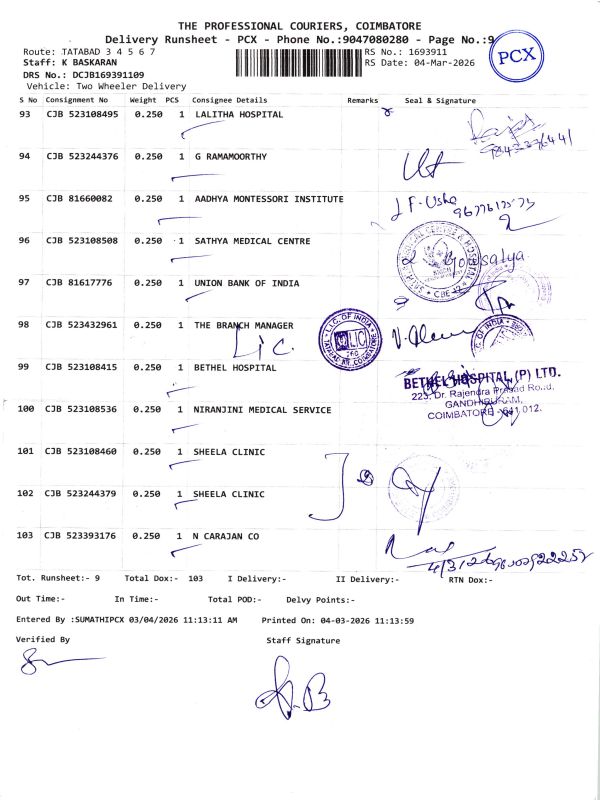 THE PROFESSIONAL COURIERS, COIMBATORE
Delivery Runsheet - PCX - Phone No.:9047080280 - Page No.:9
PCX
Route: TATABAD 3 4 5 6 7
RS No.: 1693911
Staff: K BASKARAN
RS Date: 04-Mar-2026
DRS No.: DCJB169391109
Vehicle: Two Wheeler Delivery
S No Consignment No Weight PCS Consignee Details Remarks Seal & Signature
93 CJB 523108495 0.250 1 LALITHA HOSPITAL
94 CJB 523244376 0.250 1 G RAMAMOORTHY
95 CJB 81660082 0.250 1 AADHYA MONTESSORI INSTITUTE
96 CJB 523108508 0.250 1 SATHYA MEDICAL CENTRE
97 CJB 81617776 0.250 1 UNION BANK OF INDIA
98 CJB 523432961 0.250 1 THE BRANCH MANAGER
LIC.
L.I.C. OF INDIA
LIC
99 CJB 523108415 0.250 1 BETHEL HOSPITAL
BETHEL HOSPITAL (P) LTD.
225, Dr. Rajendra Prasad Road,
GANDHIPURAM,
COIMBATORE - 641 012.
100 CJB 523108536 0.250 1 NIRANJINI MEDICAL SERVICE
101 CJB 523108460 0.250 1 SHEELA CLINIC
102 CJB 523244379 0.250 1 SHEELA CLINIC
103 CJB 523393176 0.250 1 N CARAJAN CO
Tot. Runsheet:- 9 Total Dox:- 103 I Delivery:- II Delivery:- RTN Dox:-
Out Time:- In Time:- Total POD:- Delvy Points:-
Entered By :SUMATHIPCX 03/04/2026 11:13:11 AM Printed On: 04-03-2026 11:13:59
Verified By Staff Signature